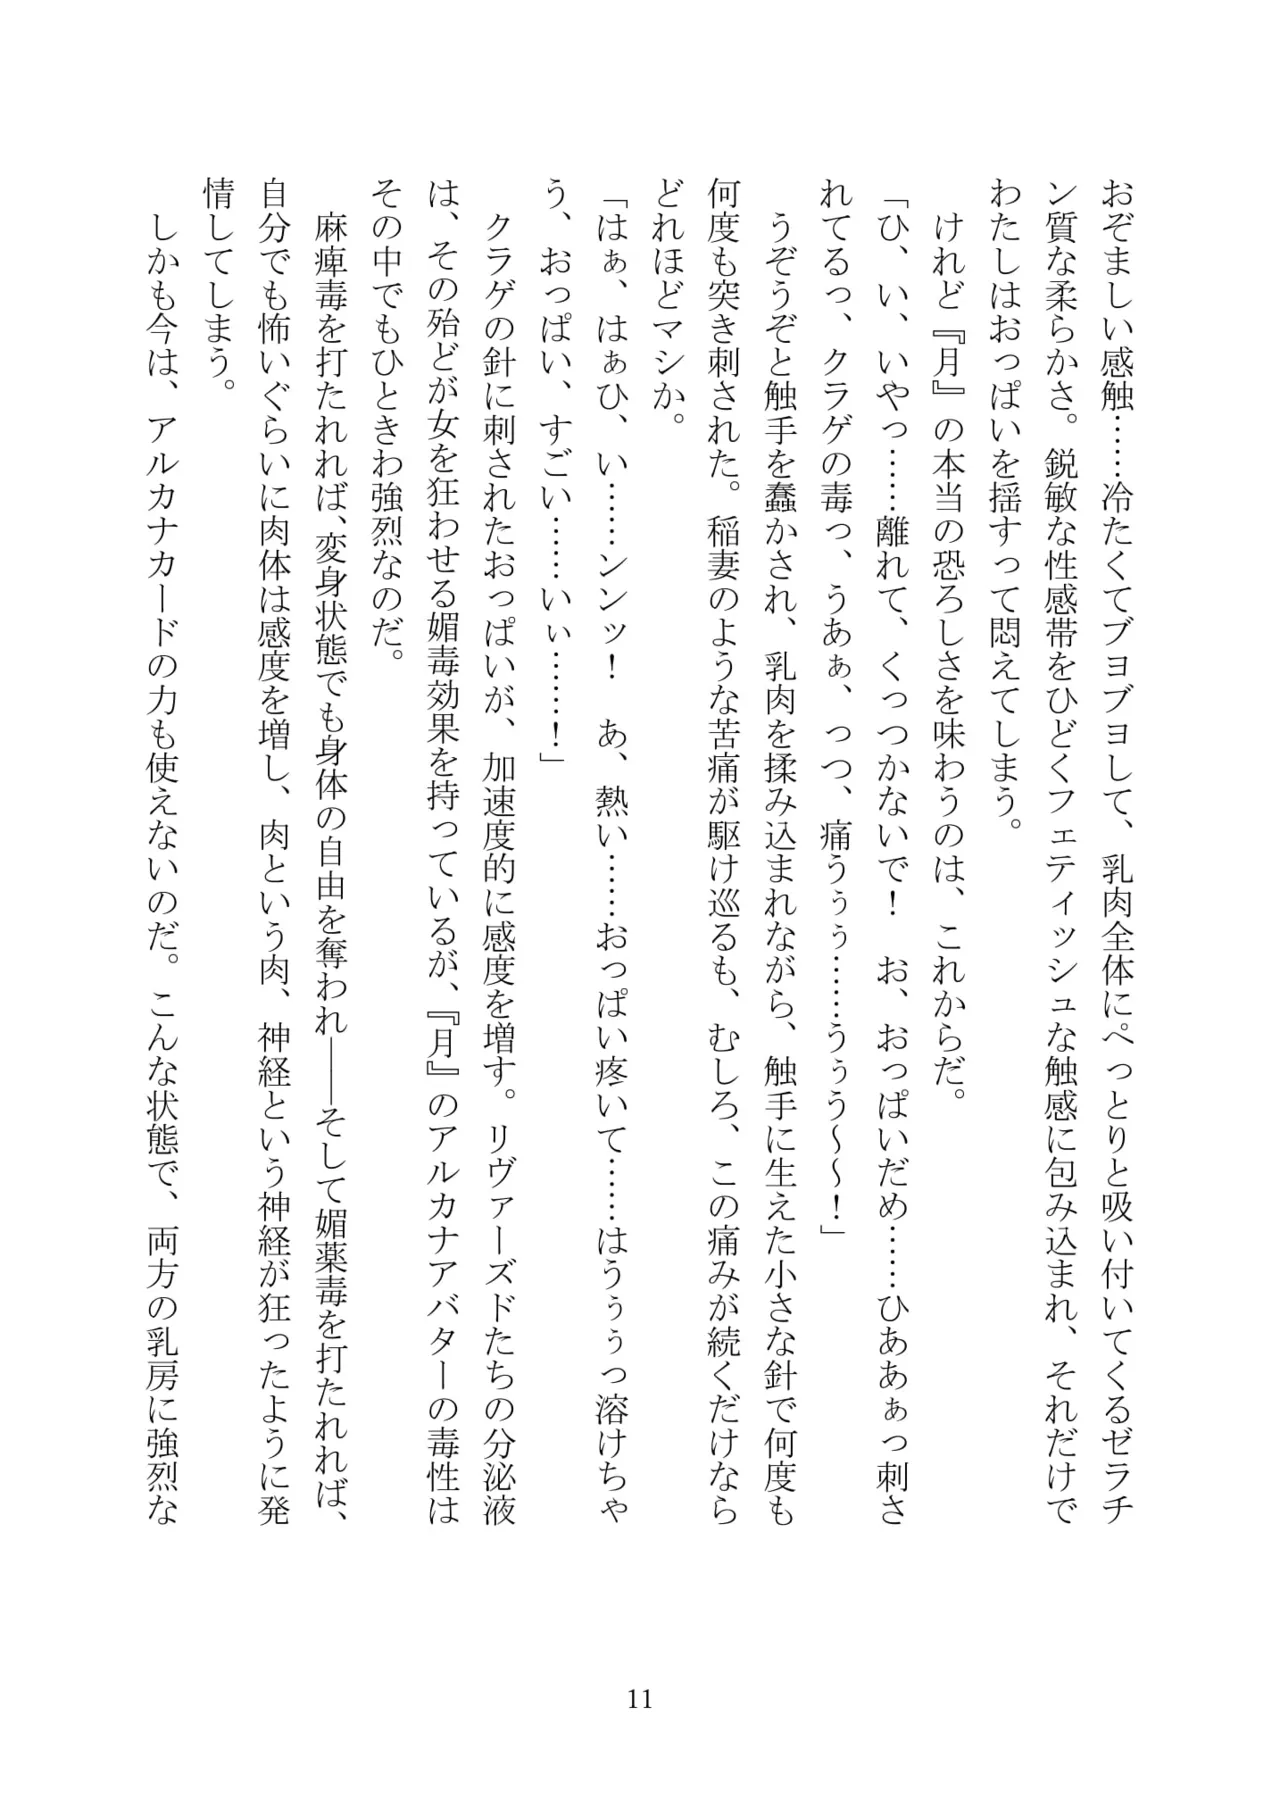 おぞましい感触……冷たくてブヨブヨして、乳肉全体にぺっとりと吸い付いてくるゼラチ
ン質な柔らかさ。鋭敏な性感帯をひどくフェティッシュな触感に包み込まれ、それだけで
わたしはおっぱいを揺すって悶えてしまう。
けれど『月』の本当の恐ろしさを味わうのは、これからだ。
「ひ、い、いやっ……離れて、くっつかないで！　お、おっぱいだめ……ひああぁっ刺さ
れてるっ、クラゲの毒っ、うあぁ、っつ、痛うぅぅ……うぅう～～！」
うぞうぞと触手を蠢かされ、乳肉を揉み込まれながら、触手に生えた小さな針で何度も
何度も突き刺された。稲妻のような苦痛が駆け巡るも、むしろ、この痛みが続くだけなら
どれほどマシか。
「はぁ、はぁひ、い……ンンッ！　あ、熱い……おっぱい疼いて……はうぅぅっ溶けちゃ
う、おっぱい、すごい……いぃ……！」
クラゲの針に刺されたおっぱいが、加速度的に感度を増す。リヴァーズドたちの分泌液
は、その殆どが女を狂わせる媚毒効果を持っているが、『月』のアルカナアバターの毒性は
その中でもひときわ強烈なのだ。
麻痺毒を打たれれば、変身状態でも身体の自由を奪われ――そして媚薬毒を打たれれば、
自分でも怖いぐらいに肉体は感度を増し、肉という肉、神経という神経が狂ったように発
情してしまう。
しかも今は、アルカナカードの力も使えないのだ。こんな状態で、両方の乳房に強烈な
11